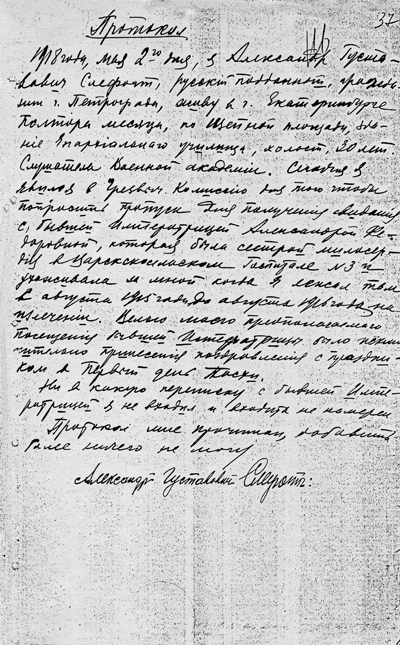 37
Протокол
1918 года, мая 2го дня, я Александр Густа-
вович Слефогт, русский подданный, гражда-
нин г. Петрограда, живу в г. Екатеринбурге
полтора месяца, по Щепной площади, зда-
ние Епархіальнаго училища, холост, 30 лет
Слушатель Военной академии. Сегодня я
явился в Чрезвыч. Комиссию для того чтобы
попросить пропуск для получения свидания
с бывшей Императрицей Александрой Фе-
доровной, которая была сестрой милосер-
дия в Царскосельском Госпитале №3 и
ухаживала за мной когда я лежал там
с августа 1915 года до августа 1916 года на
излечении. Целью моего предполагаемого
посещения бывшей Императрицы было исклю-
чительно принесения поздравления с праздни-
ком в Первый день Пасхи.
Ни в какую переписку с бывшей Импе-
ратрицей я не входил и входить не намерен
Протокол мне прочитан, добавить
более ничего не могу
Александр Густавович Слефогт.